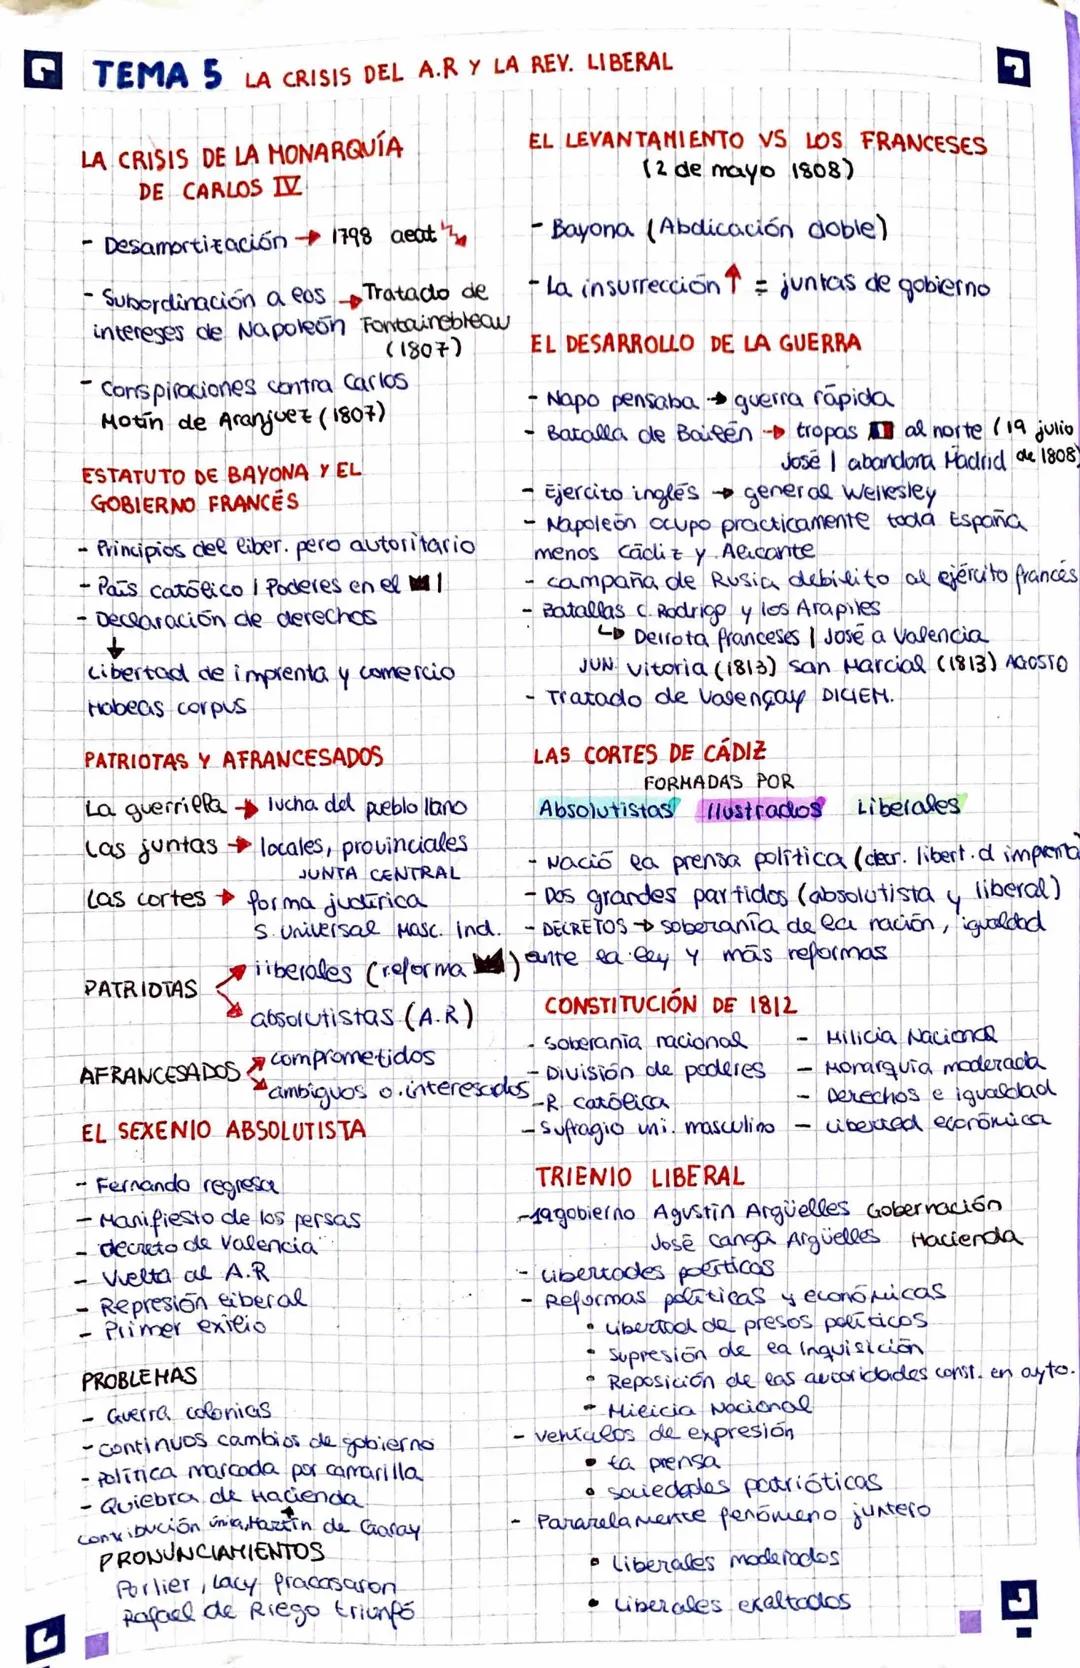 TEMA 5 LA CRISIS DEL A.R Y LA REV. LIBERAL
LA CRISIS DE LA MONARQUÍA
DE CARLOS IV
- Desamortización → 1798
- Subordinación a los → Tratado de
intereses de Napoleón Fontainebleau
(1807)
- Conspiraciones contra Carlos
Motín de Aranjuez (1807)
ESTATUTO DE BAYONA Y EL
GOBIERNO FRANCÉS
- Principios del liber. pero autoritario
- País católico | Poderes en el
- Declaración de derechos
↓
Libertad de imprenta y comercio
Habeas corpus
PATRIOTAS Y AFRANCESADOS
La guerrilla → lucha del pueblo llano
Las juntas → locales, provinciales
JUNTA CENTRAL
Las cortes → forma judírica
S. universal Masc. ind.
PATRIOTAS
liberales (reforma )
absolutistas (A.R)
AFRANCESADOS
comprometidos
ambiguos o interesados
EL SEXENIO ABSOLUTISTA
- Fernando regresa
- Manifiesto de los persas
- decreto de Valencia
- Vuelta al A.R
- Represión liberal
- Primer exilio
PROBLEMAS
- Guerra colonias
- continuos cambios de gobierno
- Política marcada por camarilla
- Quiebra de Hacienda
contribución única, Martín de Garay
PRONUNCIAMIENTOS
Porlier, Lacy fracasaron
Rafael de Riego triunfó
EL LEVANTAMIENTO VS LOS FRANCESES
(2 de mayo 1808)
- Bayona (Abdicación doble)
- La insurrección ↑ = juntas de gobierno
EL DESARROLLO DE LA GUERRA
- Napo pensaba → guerra rápida
- Batalla de Bailén → tropas al norte (19 julio
José I abandora Madrid de 1808)
- Ejercito inglés → general Wellesley
- Napoleón ocupo practicamente toda España
menos Cádiz y Alicante
- campaña de Rusia debilito al ejército francés
- Batallas C. Rodrigo y los Arapiles
↳ Derrota franceses | José a Valencia
JUN. Vitoria (1813) San Marcial (1813) AGOSTO
- Tratado de Valençay DICIEM.
LAS CORTES DE CÁDIZ
FORMADAS POR
Absolutistas Ilustrados Liberales
- Nació la prensa política (decr. libert. d imprenta
- Dos grandes partidos (absolutista y liberal)
- DECRETOS → soberanía de la nación, igualdad
ante la ley y más reformas
CONSTITUCIÓN DE 1812
- Soberanía nacional
- División de poderes
- R. católica
- Sufragio uni. masculino
- Milicia Nacional
- Monarquía moderada
- Derechos e igualdad
- Libertad económica
TRIENIO LIBERAL
- 1º gobierno Agustín Argüelles Gobernación
José Canga Argüelles Hacienda
- Libertades políticas
- Reformas políticas y económicas
• Libertad de presos políticos
• Supresión de la Inquisición
• Reposición de las autoridades const. en ayto.
- Milicia Nacional
- vehículos de expresión
• la prensa
• sociedades patrióticas
- Pararelamente fenómeno juntero
• Liberales moderados
• Liberales exaltados